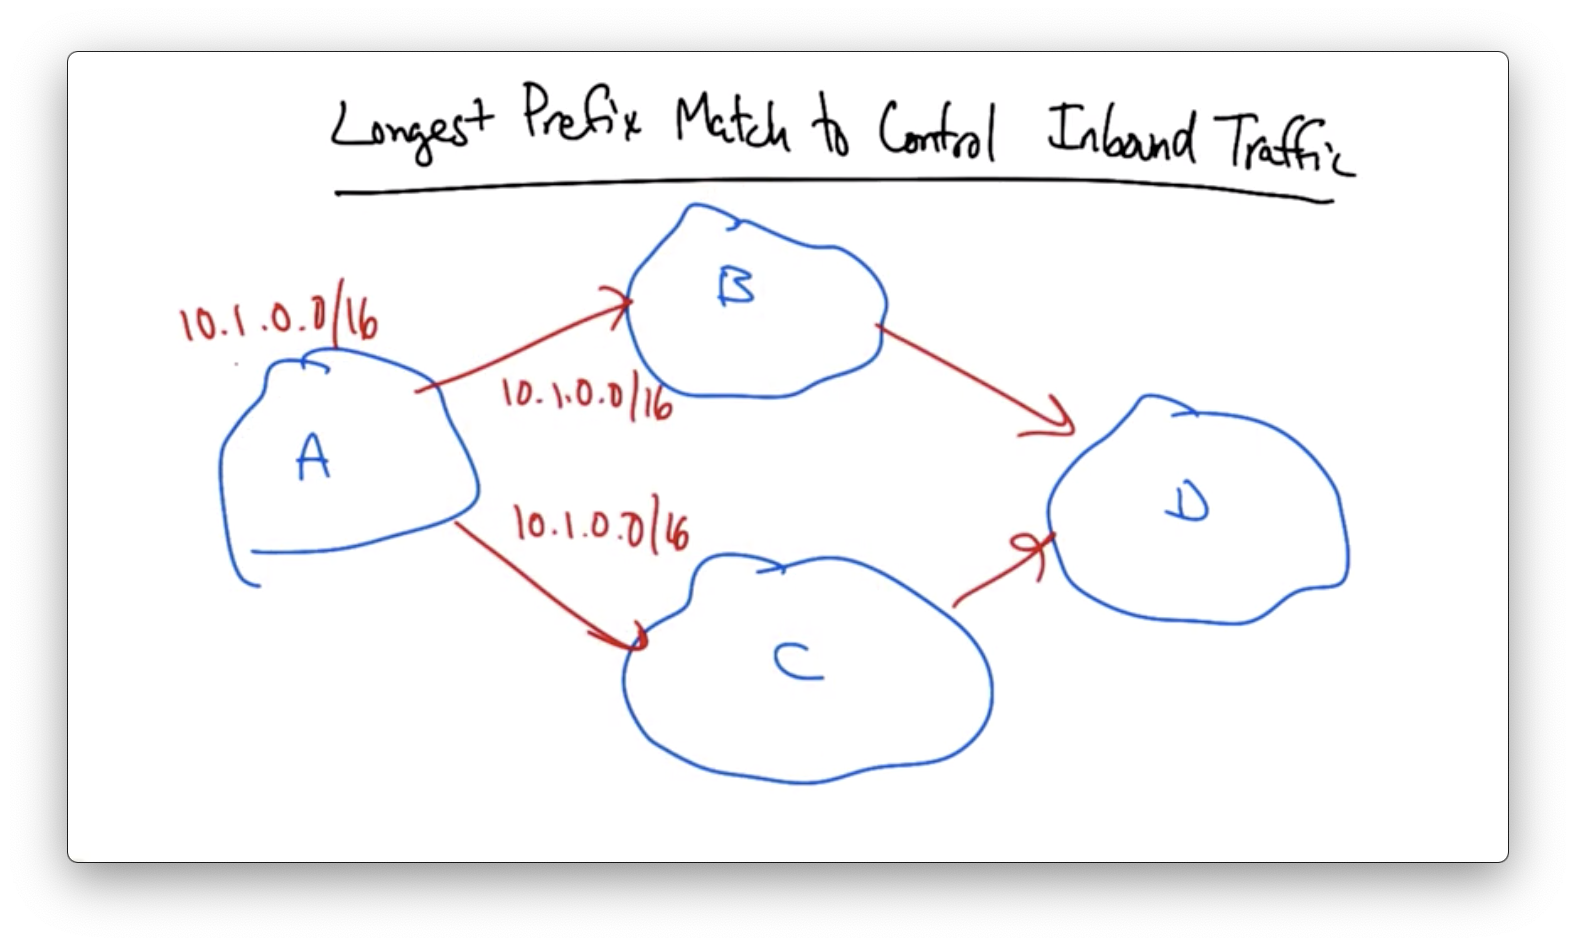 Longest Prefix Match to Control Inbound Traffic
B
10.1.0.0/16
10.1.0.0/16
A
10.1.0.0/16
D
C